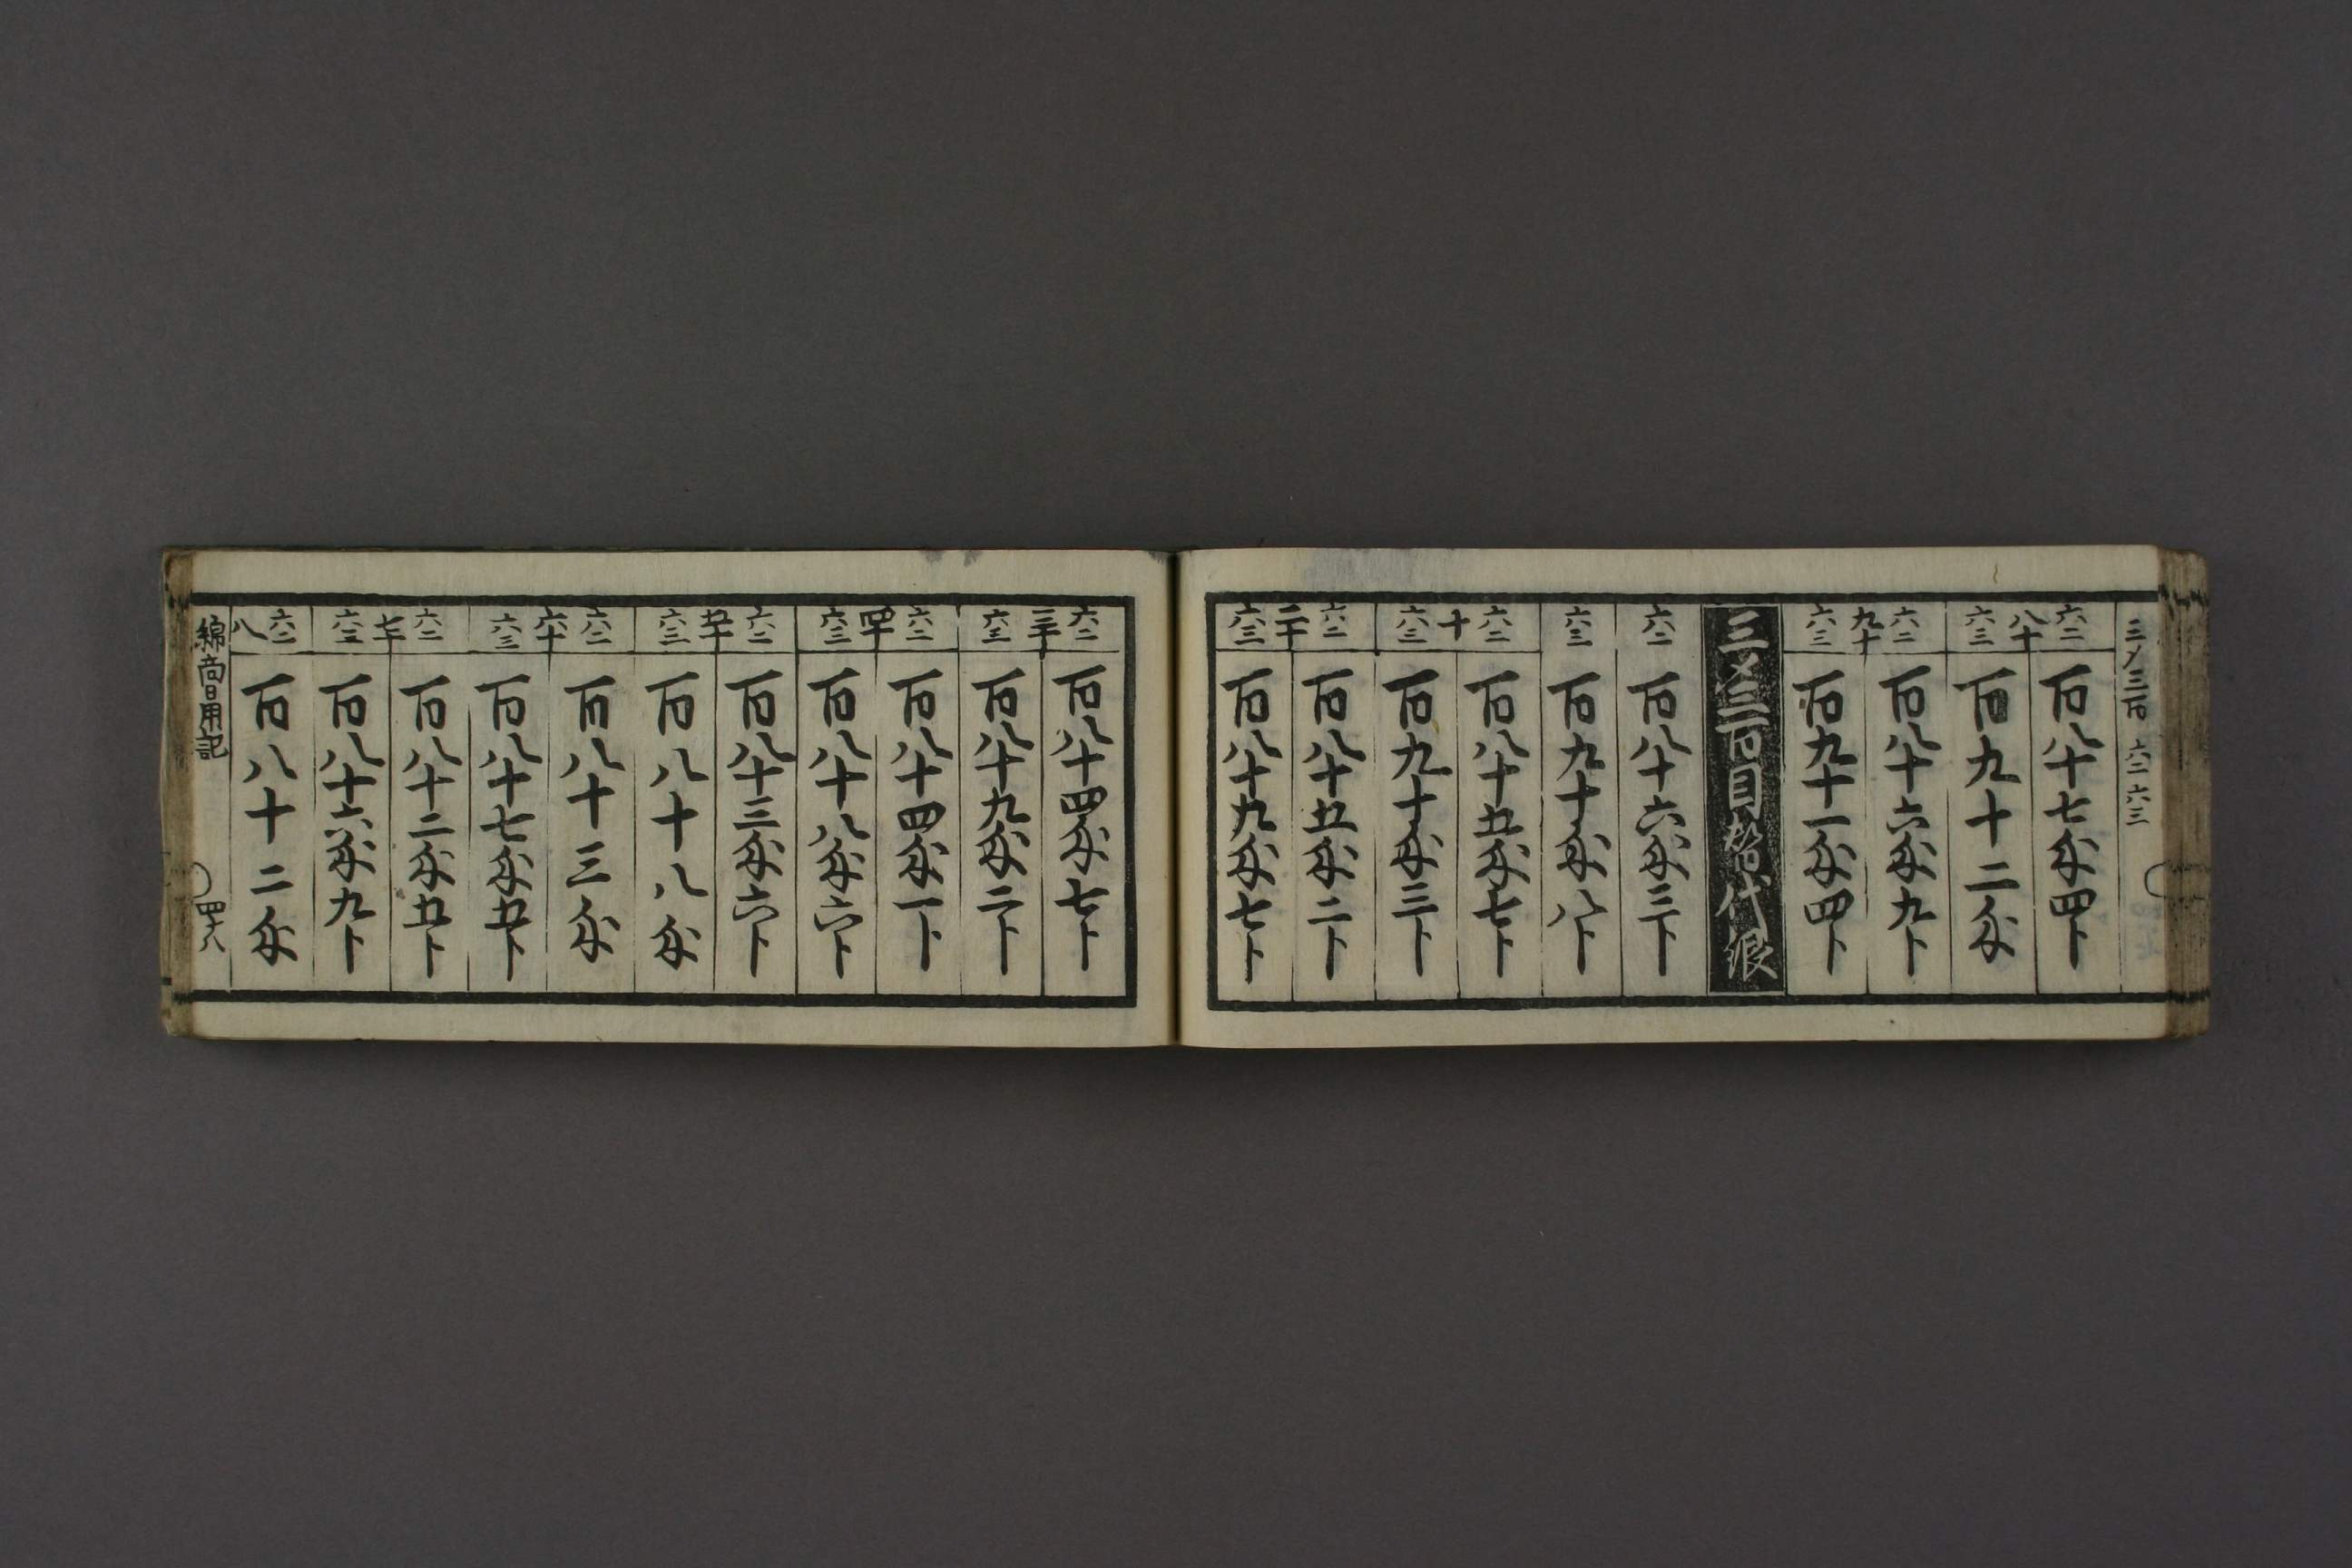 三〆三百 六二 六三
六二 八十 百八十七匁四卜
六三 百九十二匁
六二 九十 百八十六匁九卜
六三 百九十一匁四卜
三〆三百目替代銀
六二 百八十六匁三卜
六三 百九十匁八卜
六二 十 百八十五匁七卜
六三 百九十匁三卜
六二 二十 百八十五匁二卜
六三 百八十九匁七卜
六二 三十 百八十四匁七卜
六三 百八十九匁二卜
六二 四十 百八十四匁一卜
六三 百八十八匁六卜
六二 五十 百八十三匁六卜
六三 百八十八匁
六二 六十 百八十三匁
六三 百八十七匁五卜
六二 七十 百八十二匁五卜
六三 百八十六匁九卜
六二 八 百八十二匁
綿商日用記 四十八